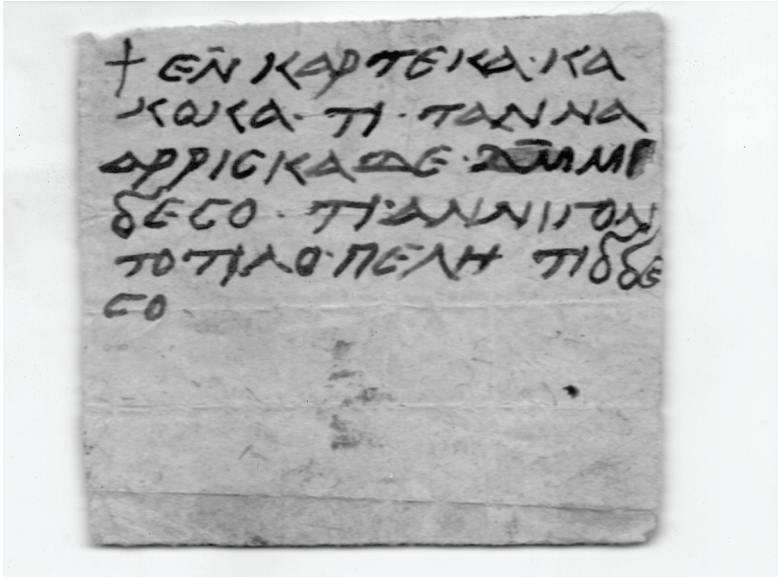 † ⲉⲛ̄ ⲕⲁⲣⲧⲉⲕⲁ· ⲕⲁ
ⲕⲟⲕⲁ· ⲧⲓ· ⲧⲁⲛⲛⲁ
ⲁⲣⲣⲓⲥⲕⲁⲇⲉ·
ϭⲉⲥⲟ· ⲧⲓ·ⲁⲛⲛⲓⲅⲟⲛ
ⲧⲟⲧⲓⲗⲟ·ⲡⲉⲗⲏ ⲧⲓϭϭⲉ
ⲥⲟ